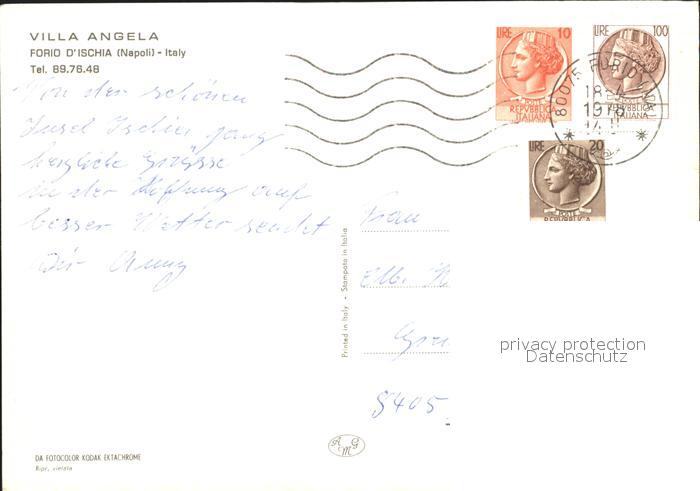 VILLA ANGELA
FORIO D'ISCHIA (Napoli) - Italy
Tel. 89.76.48
Von der schönen
Insel Ischia ganz
herzliche Grüsse
in der Hoffnung auf
besser Wetter sendet
Dir
LIRE 10
POSTE
REPVBBLICA
ITALIANA
LIRE 100
POSTE
REPVBBLICA
ITALIANA
80075 FORIO
LIRE 20
POSTE
REPVBBLICA
Printed in Italy - Stampato in Italia
Frau
Elb.
8405
privacy protection
Datenschutz
AMG
DA FOTOCOLOR KODAK EKTACHROME
Ripr. vietata